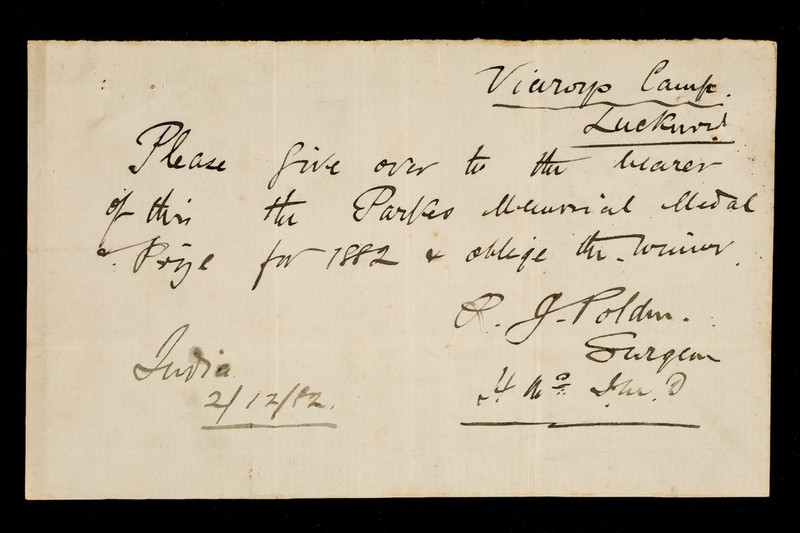 Viceroy's Camp.
Lucknow
Please give over to the bearer
of this the Parkes Memorial Medal
& Prize for 1882 & oblige the winner.
R. J. Polden.
Surgeon
I.M.D
India
2/12/82.